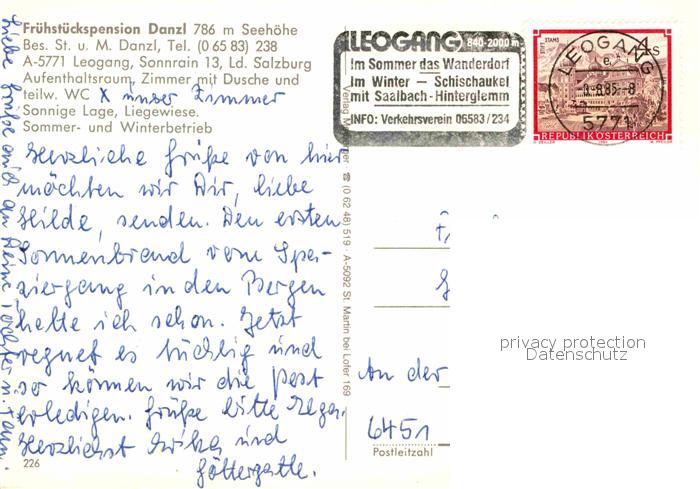 Frühstückspension Danzl 786 m Seehöhe
Bes. St. u. M. Danzl, Tel. (0 65 83) 238
A-5771 Leogang, Sonnrain 13, Ld. Salzburg
Aufenthaltsraum, Zimmer mit Dusche und
teilw. WC X unser Zimmer
Sonnige Lage, Liegewiese.
Sommer- und Winterbetrieb
Herzliche Grüße von hier
möchten wir Dir, liebe
Hilde, senden. Den ersten
Sonnenbrand vom Spa-
ziergang in den Bergen
hatte ich schon. Jetzt
regnet es tüchtig und
so können wir die Post
erledigen. Grüße bitte
Herzlichst Erika und
Göttergatte.
226
Liebe Grüße auch an Deine Tochter u.
LEOGANG 840-2000 m
Im Sommer das Wanderdorf
Im Winter – Schischaukel
mit Saalbach-Hinterglemm
INFO: Verkehrsverein 06583/234
LEOGANG
8.85-8
5771
STIFT STAMS
4 S
REPUBLIK ÖSTERREICH
O. ZEILLER
W. PFEILER
Verlag
☎ (0 62 48) 519 · A-5092 St. Martin bei Lofer 169
An der
6451
Postleitzahl
privacy protection
Datenschutz